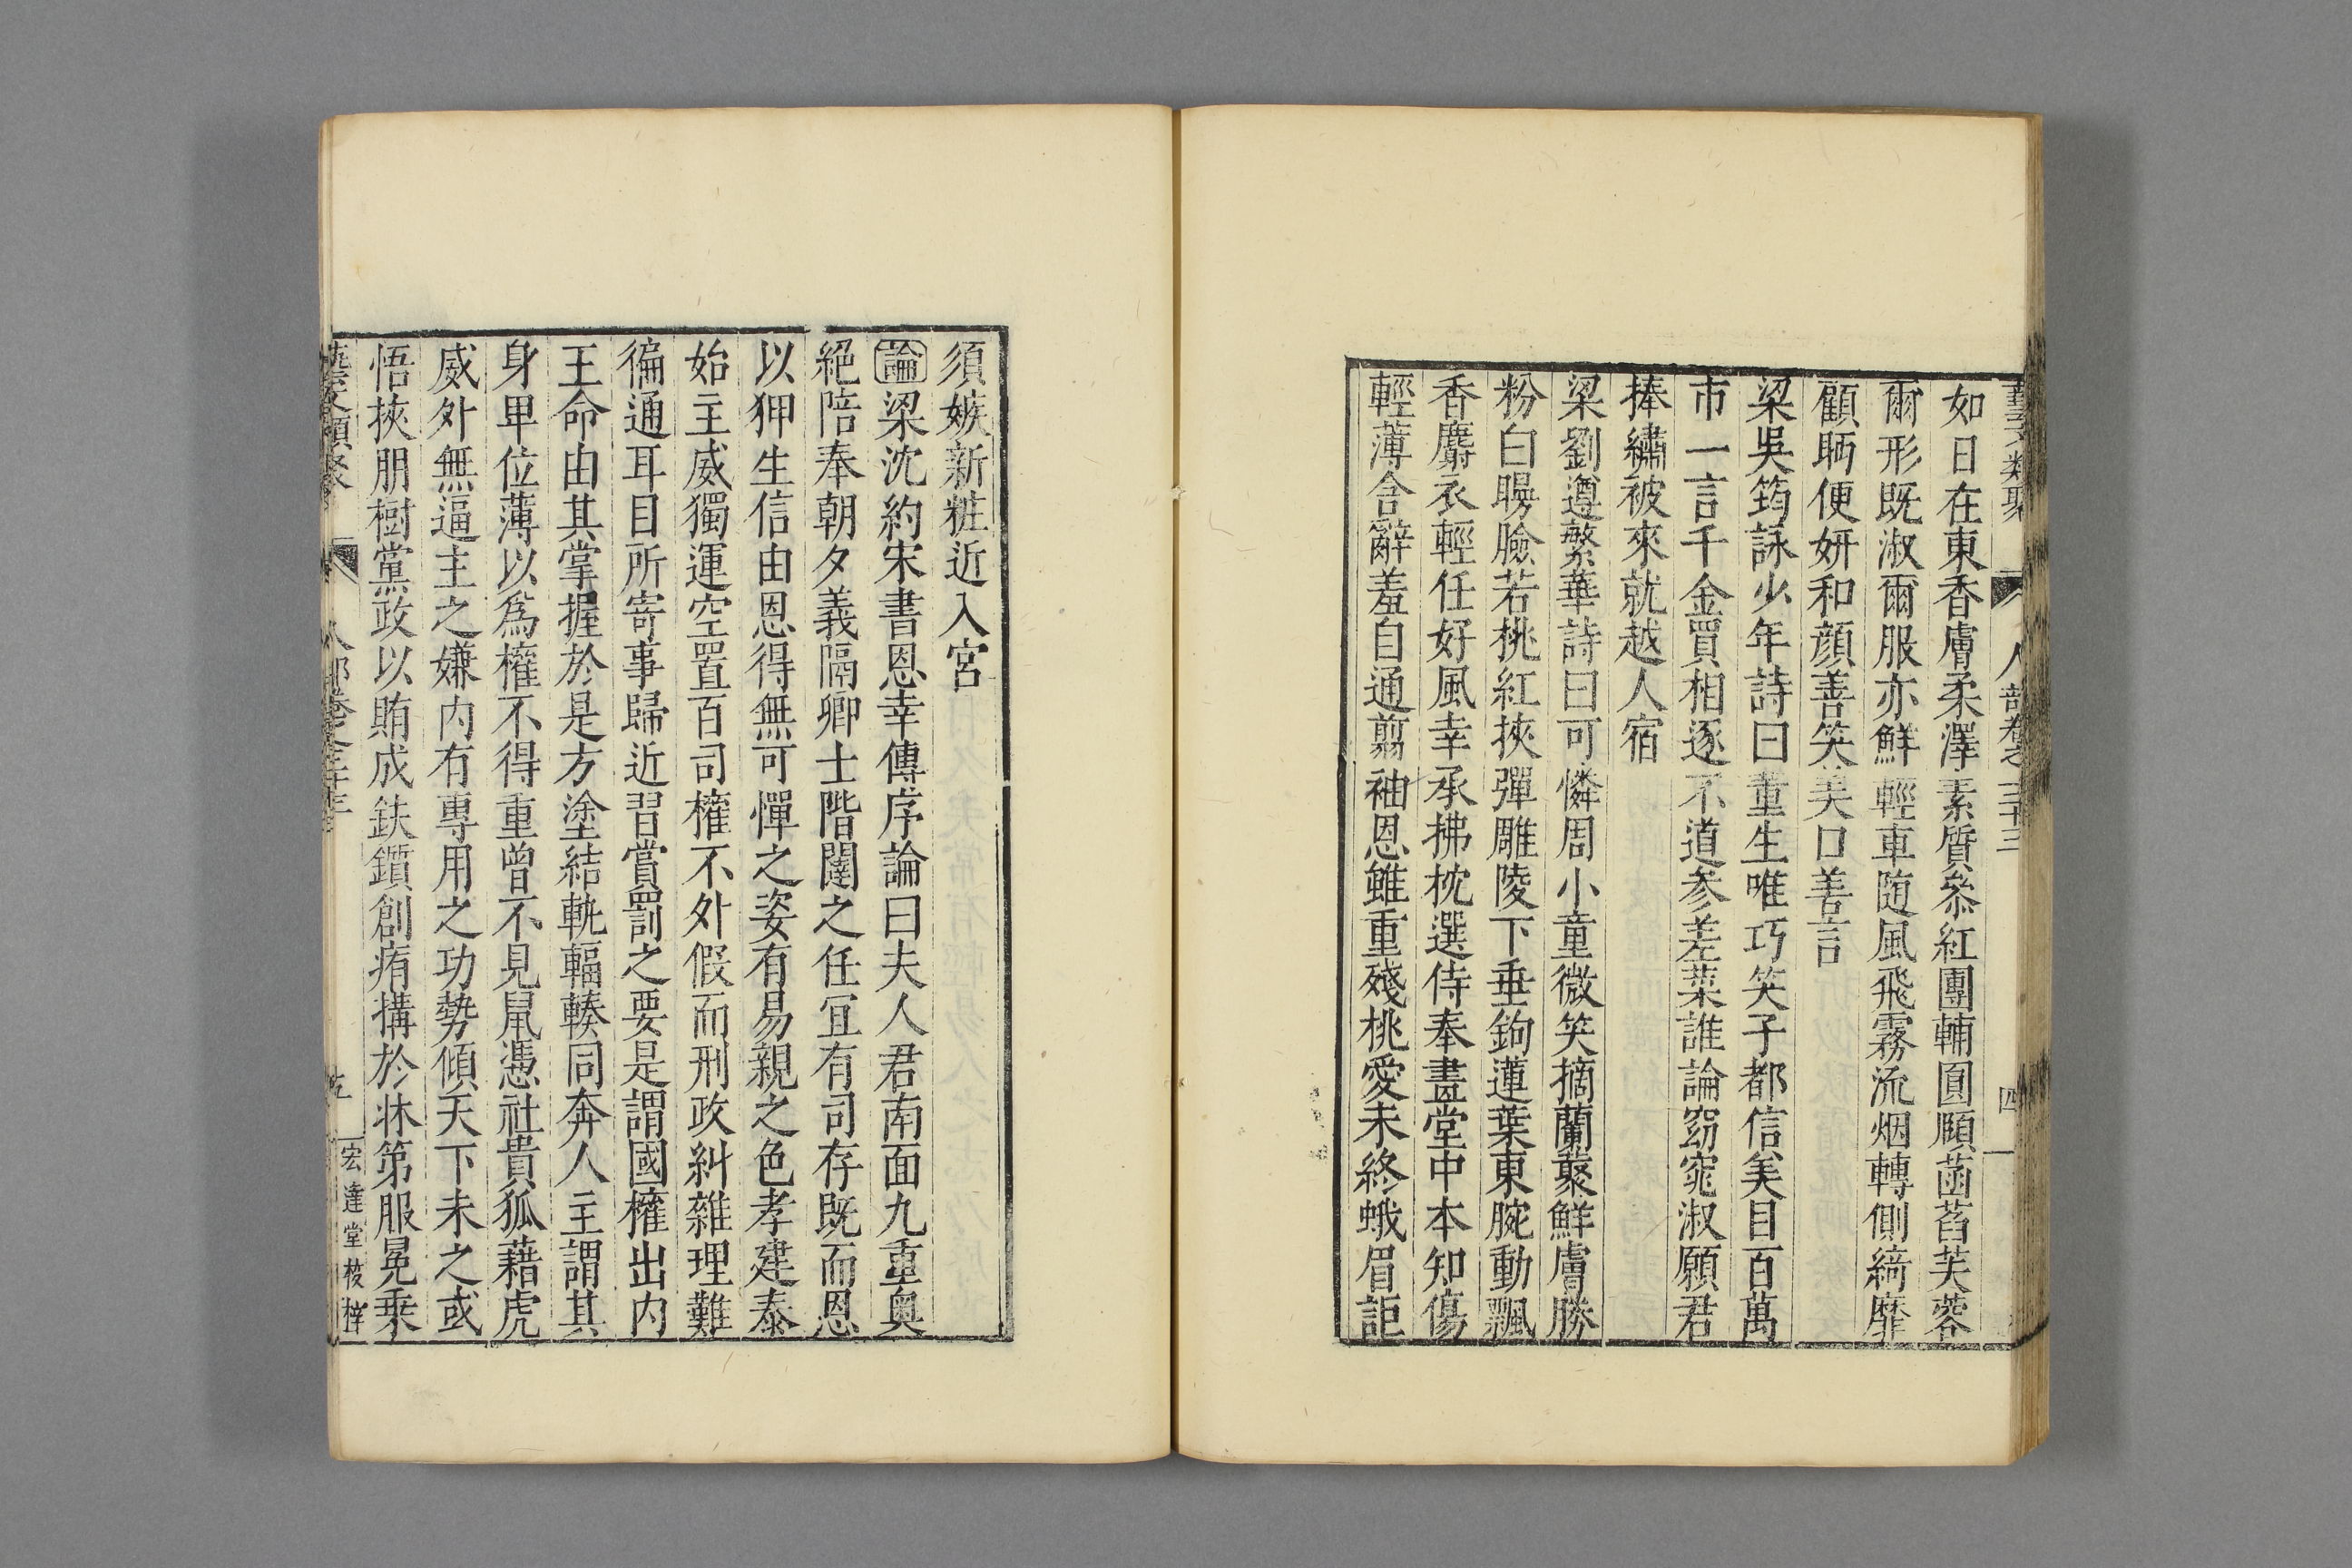 藝文類聚 人部卷之三十三 四
如日在東香膚柔澤素質參紅團輔圓頤菡萏芙蓉
爾形既淑爾服亦鮮輕車随風飛霧流烟轉側綺靡
顧眄便妍和顔善笑美口善言
梁吳筠詠少年詩曰董生唯巧笑子都信美目百萬
市一言千金買相逐不道參差菜誰論窈窕淑願君
捧繡被來就越人宿
梁劉遵繁華詩曰可憐周小童微笑摘蘭叢鮮膚勝
粉白㬫臉若桃紅挾彈雕陵下垂鉤蓮葉東腕動飄
香麝衣輕任好風幸承拂枕選侍奉晝堂中本知傷
輕薄含辭羞自通剪袖恩雖重殘桃愛未終蛾眉詎
須嫉新粧近入宮
論梁沈約宋書恩幸傳序論曰夫人君南面九重奥
絕陪奉朝夕義隔卿士階闥之任宜有司存既而恩
以狎生信由恩得無可憚之姿有易親之色孝建泰
始主威獨運空置百司權不外假而刑政糾雜理難
徧通耳目所寄事歸近習賞罰之要是謂國權出内
王命由其掌握於是方塗結軌輻輳同奔人主謂其
身卑位薄以爲權不得重曾不見鼠憑社貴狐藉虎
威外無逼主之嫌内有專用之功勢傾天下未之或
悟挾朋樹黨政以賄成鈇鑕創痏搆於牀第服冕乗
藝文類聚 人部卷之三十三 五 宏達堂校梓